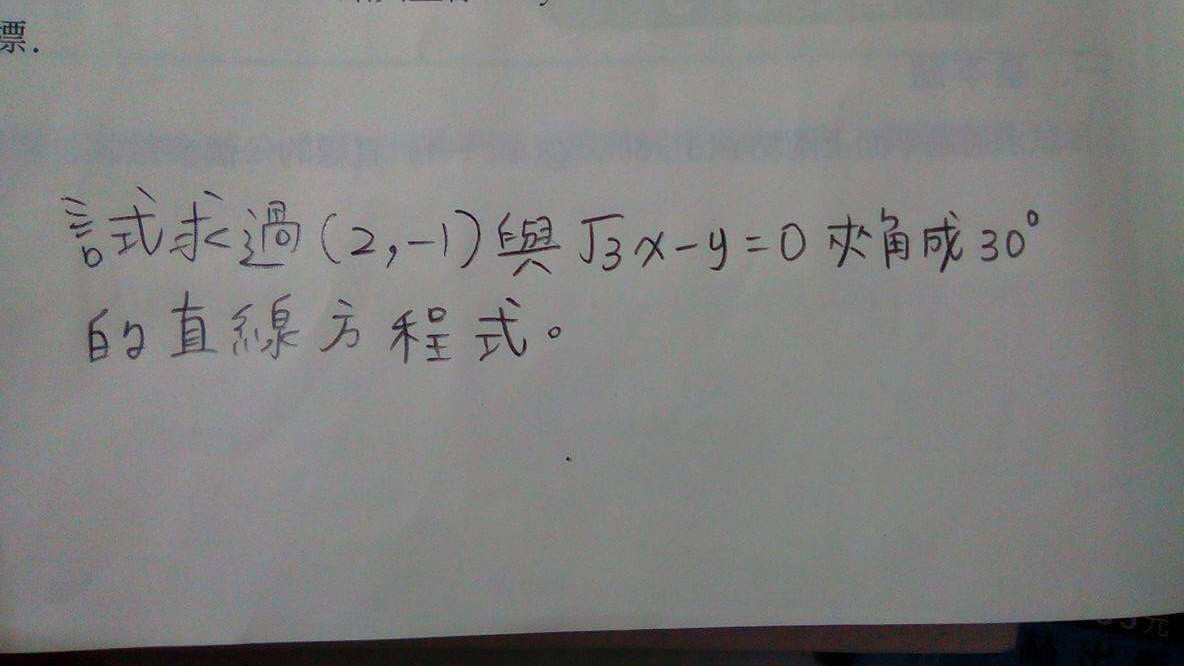 標.
試求過(2,-1)與√3x-y=0夾角成30°
的直線方程式。
元